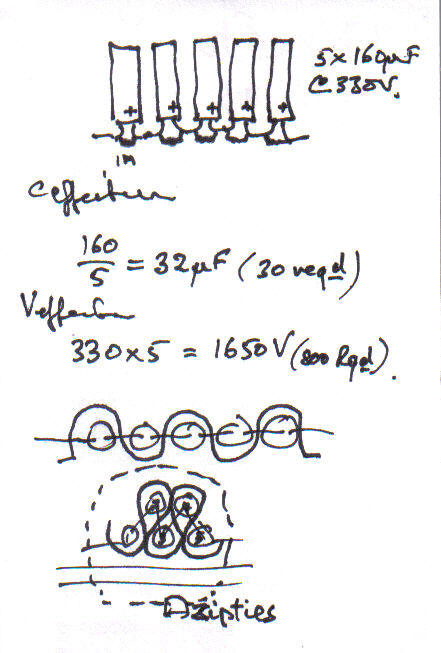 5×160µF
@ 330V.
+ + + + +
1M
Ceffective
160
5
= 32µF (30 reqd)
Veffective
330×5 = 1650V (800 Rqd).
zipties